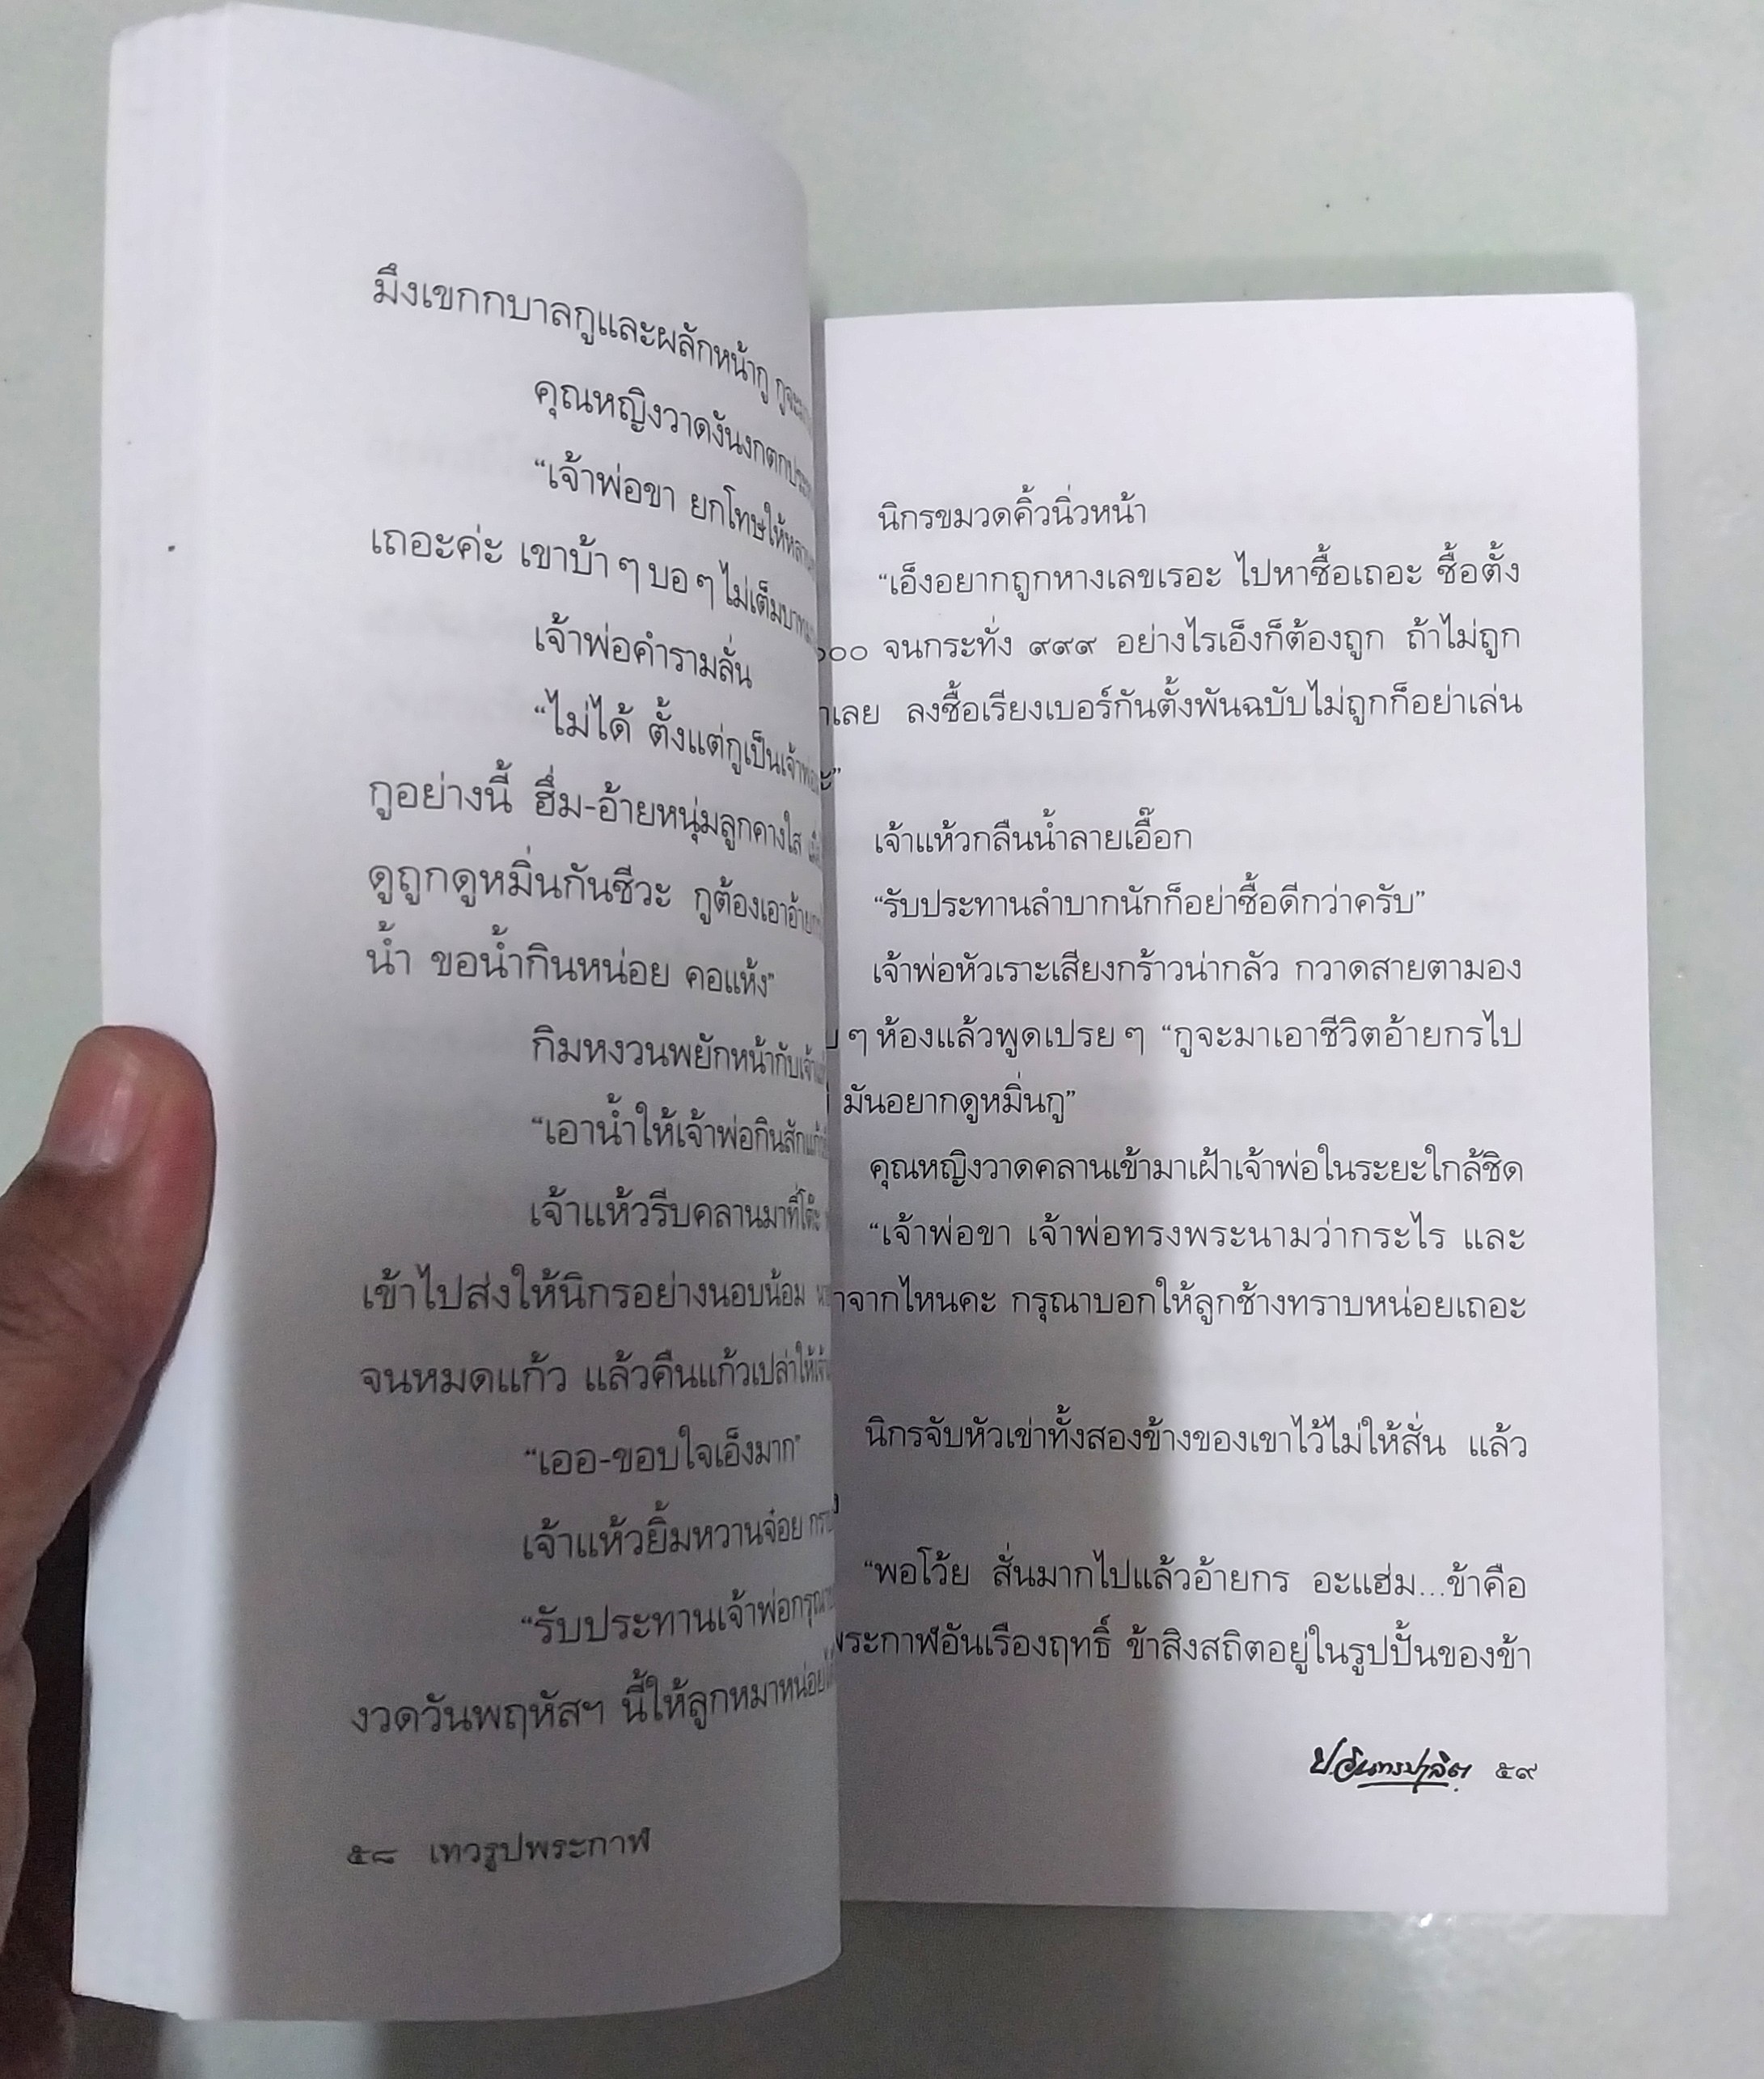 มึงเขกกบาลกูและผลักหน้ากู
คุณหญิงวาดงันงกตกประ
“เจ้าพ่อขา ยกโทษให้หลาน
เถอะค่ะ เขาบ้า ๆ บอ ๆ ไม่เต็มบาท
เจ้าพ่อคำรามลั่น
“ไม่ได้ ตั้งแต่กูเป็นเจ้าพ่อ
กูอย่างนี้ ฮึ่ม-อ้ายหนุ่มลูกคางใส
ดูถูกดูหมิ่นกันชีวะ กูต้องเอาอ้าย
น้ำ ขอน้ำกินหน่อย คอแห้ง”
กิมหงวนพยักหน้ากับเจ้า
“เอาน้ำให้เจ้าพ่อกินสักแก้ว
เจ้าแห้วรีบคลานมาที่โต๊ะ
เข้าไปส่งให้นิกรอย่างนอบน้อม
จนหมดแก้ว แล้วคืนแก้วเปล่าให้เจ้า
“เออ-ขอบใจเอ็งมาก”
เจ้าแห้วยิ้มหวานจ๋อย
“รับประทานเจ้าพ่อกรุณา
งวดวันพฤหัสฯ นี้ให้ลูกหมาหน่อย
๕๘ เทวรูปพระกาฬ
นิกรขมวดคิ้วนิ่วหน้า
“เอ็งอยากถูกหางเลขเรอะ ไปหาซื้อเถอะ ซื้อตั้ง
๐๐ จนกระทั่ง ๙๙๙ อย่างไรเอ็งก็ต้องถูก ถ้าไม่ถูก
เลย ลงซื้อเรียงเบอร์กันตั้งพันฉบับไม่ถูกก็อย่าเล่น
ะ”
เจ้าแห้วกลืนน้ำลายเอื๊อก
“รับประทานลำบากนักก็อย่าซื้อดีกว่าครับ”
เจ้าพ่อหัวเราะเสียงกร้าวน่ากลัว กวาดสายตามอง
ๆ ห้องแล้วพูดเปรย ๆ “กูจะมาเอาชีวิตอ้ายกรไป
มันอยากดูหมิ่นกู”
คุณหญิงวาดคลานเข้ามาเฝ้าเจ้าพ่อในระยะใกล้ชิด
“เจ้าพ่อขา เจ้าพ่อทรงพระนามว่ากระไร และ
าจากไหนคะ กรุณาบอกให้ลูกช้างทราบหน่อยเถอะ
นิกรจับหัวเข่าทั้งสองข้างของเขาไว้ไม่ให้สั่น แล้ว
“พอโว้ย สั่นมากไปแล้วอ้ายกร อะแฮ่ม...ข้าคือ
พระกาฬอันเรืองฤทธิ์ ข้าสิงสถิตอยู่ในรูปปั้นของข้า
ป.อินทรปาลิต ๕๙